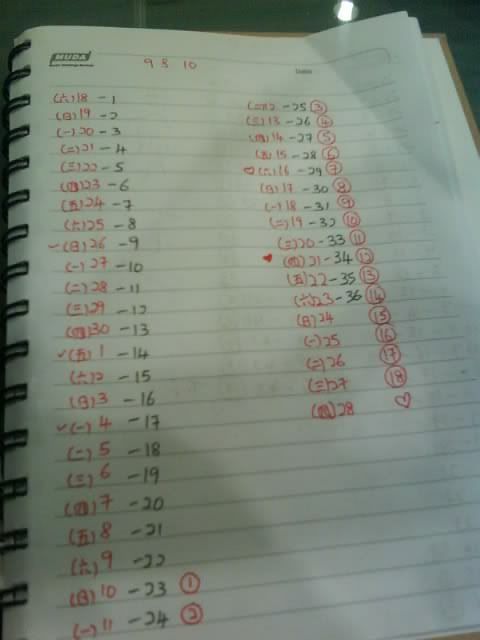 MUDA
9 10
(六)18 -1
(日)19 -2
(一)20 -3
(二)21 -4
(三)22 -5
(四)23 -6
(五)24 -7
(六)25 -8
✓(日)26 -9
(一)27 -10
(二)28 -11
(三)29 -12
(四)30 -13
✓(五)1 -14
(六)2 -15
(日)3 -16
✓(一)4 -17
(二)5 -18
(三)6 -19
(四)7 -20
(五)8 -21
(六)9 -22
(日)10 -23 ①
(一)11 -24 ②
(二)12 -25 ③
(三)13 -26 ④
(四)14 -27 ⑤
(五)15 -28 ⑥
♥(六)16 -29 ⑦
(日)17 -30 ⑧
(一)18 -31 ⑨
(二)19 -32 ⑩
(三)20 -33 ⑪
♥ (四)21 -34 ⑫
(五)22 -35 ⑬
(六)23 -36 ⑭
(日)24 ⑮
(一)25 ⑯
(二)26 ⑰
(三)27 ⑱
(四)28 ♡